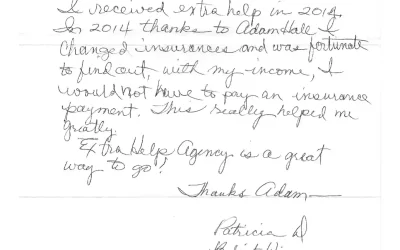 I received extra help in 2014
In 2014 thanks to Adam Hall I
changed insurances and was fortunate
to find out, with my income, I
would not have to pay an insurance
payment. This really helped me
greatly.
Extra Help Agency is a great
way to go!
Thanks Adam—
Patricia D